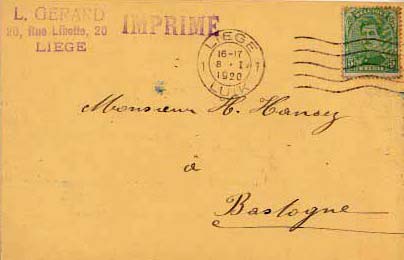 L. GERARD
20, Rue Libotte, 20
LIEGE
IMPRIMÉ
LIEGE
16-17
8 · I
1920
LUIK
Monsieur H. Hansez
à
Bastogne